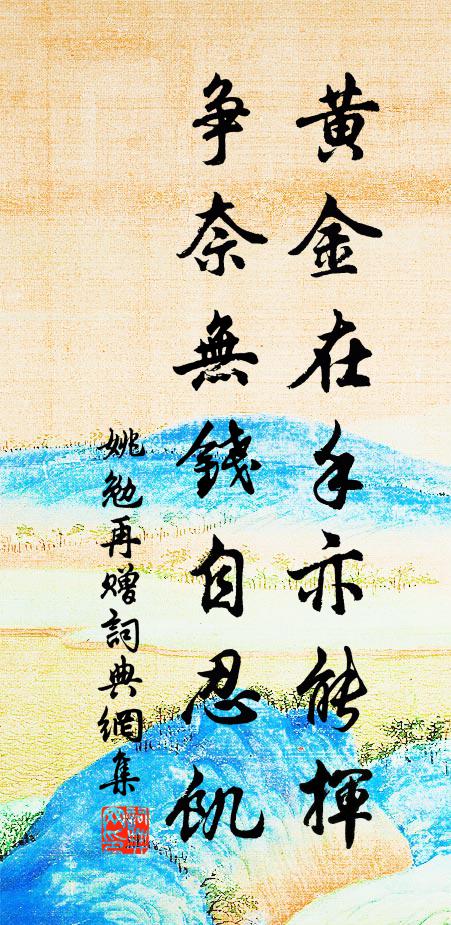 黄金在手亦能揮
争奈無錢自忍飢
姚勉再贈詞典網集